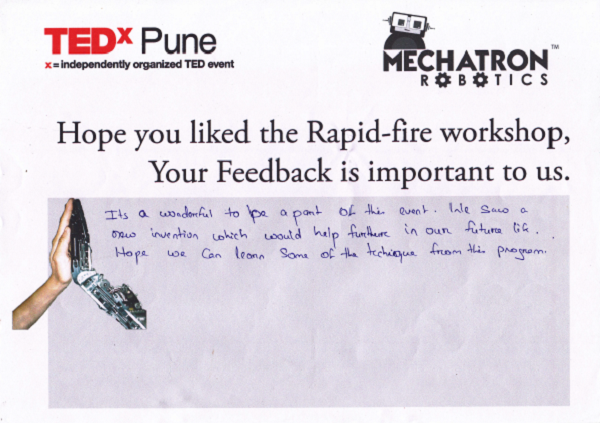 TEDx Pune
x = independently organized TED event
MECHATRON™
ROBOTICS
Hope you liked the Rapid-fire workshop,
Your Feedback is important to us.
Its a wonderful to be a part of this event. We saw a
new invention which would help furthure in our future life.
Hope we can learn some of the technique from this program.